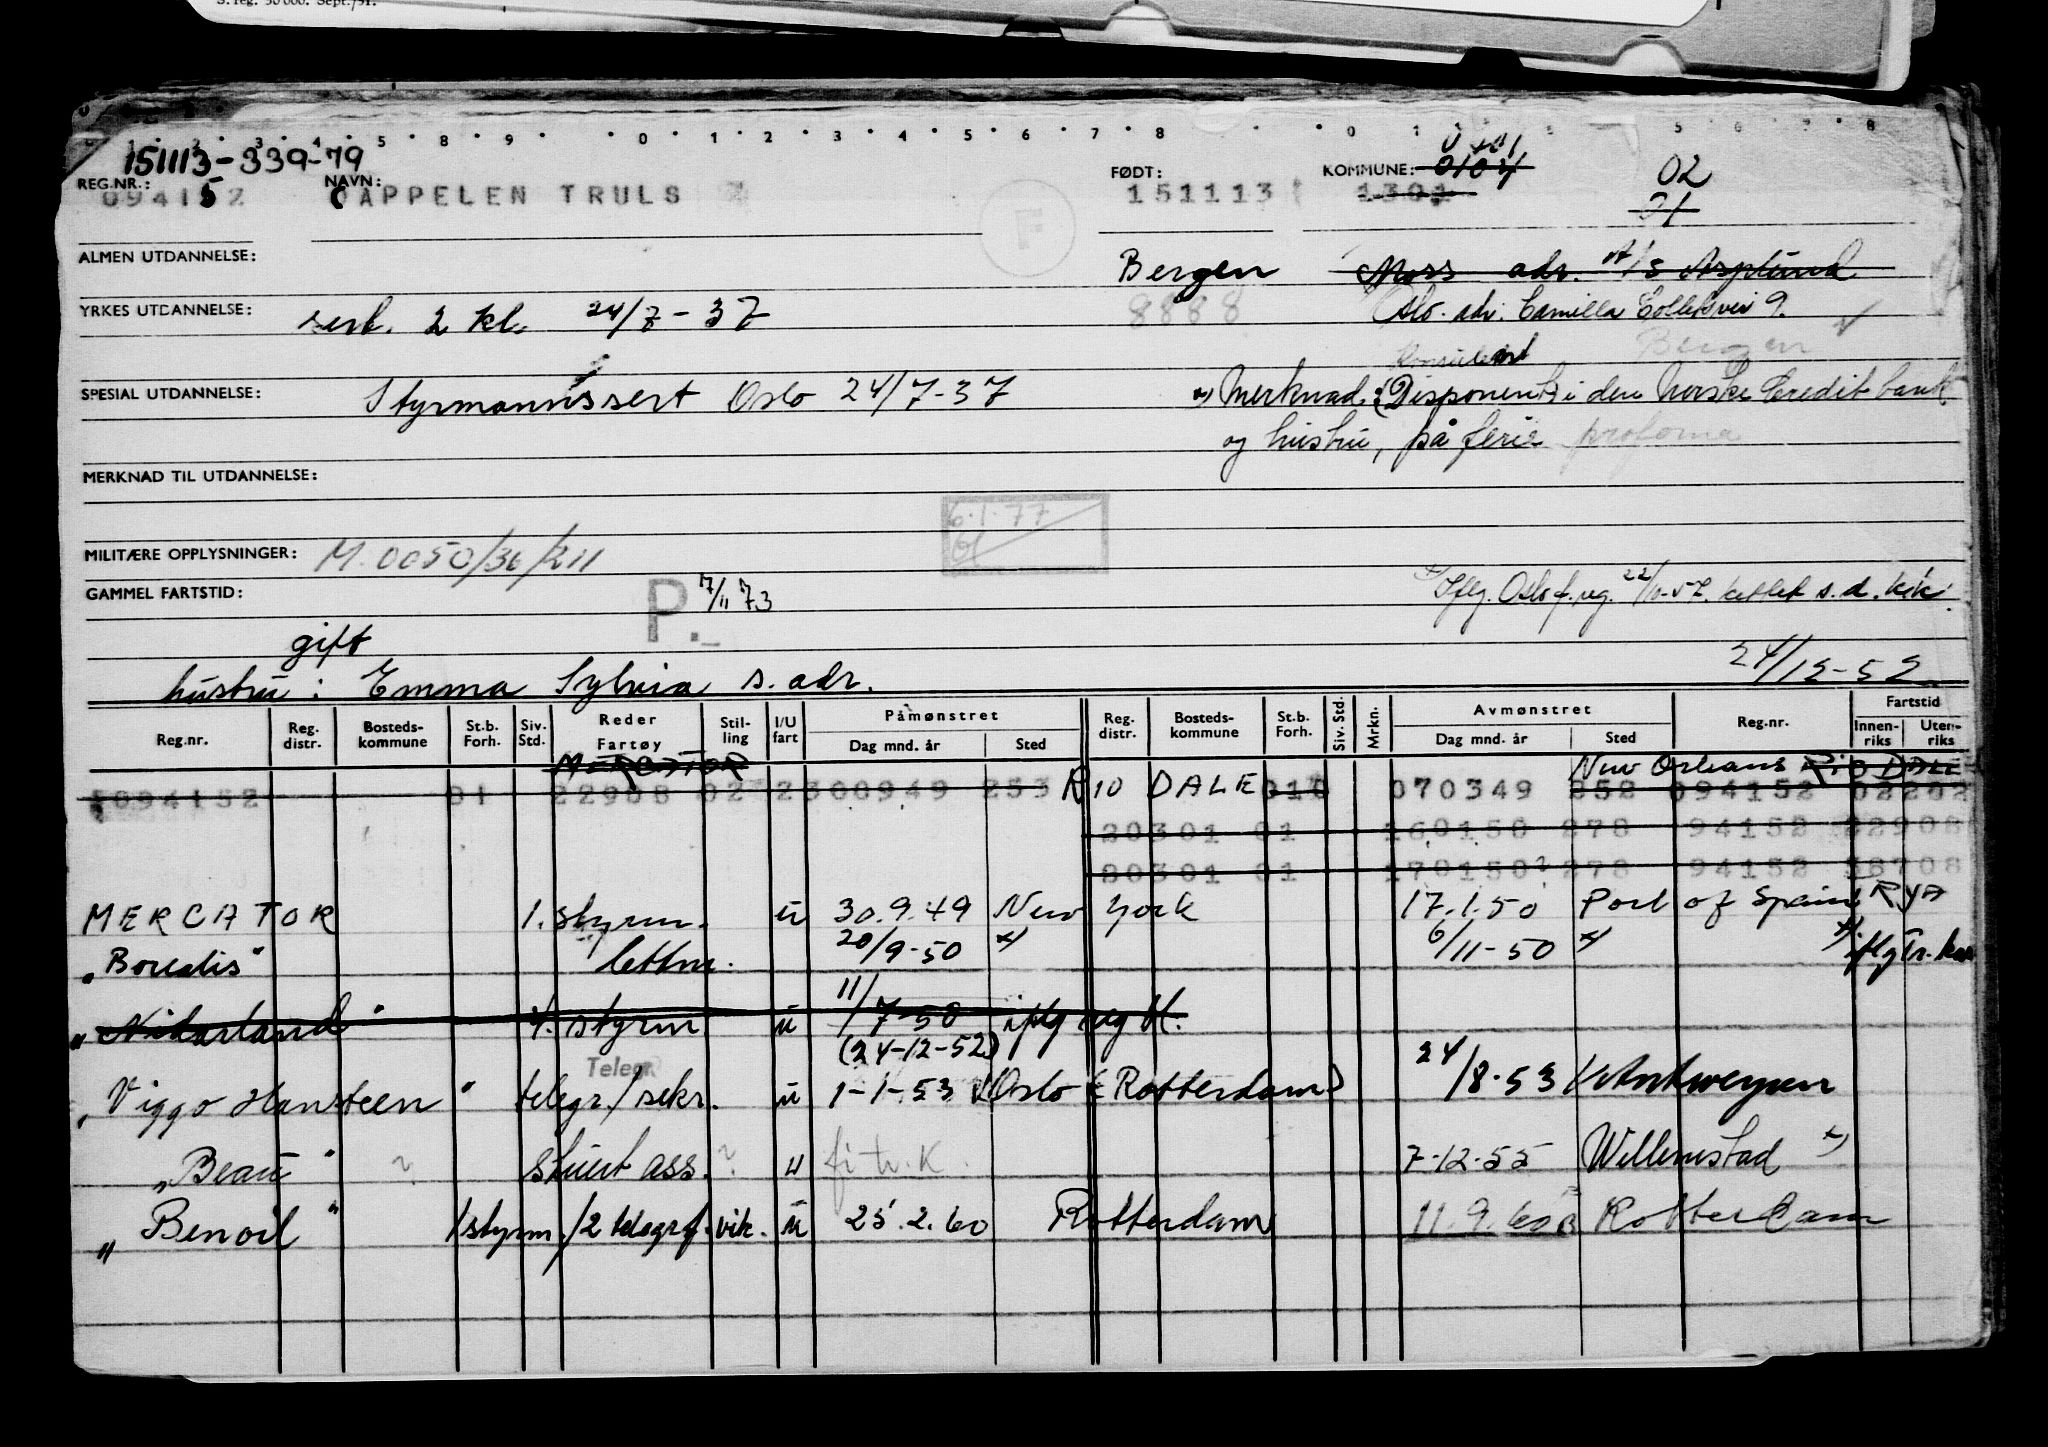 S. reg. 50 000. Sept./51.
151113-339-79
REG.NR.: NAVN: FØDT: KOMMUNE: 0104 02
094152 CAPPELEN TRULS 151113 1301 01
F
ALMEN UTDANNELSE: Bergen Moss adr. A/S Asplund
YRKES UTDANNELSE: sert. 2 kl. 24/7-37 8888 Oslo adr. Camilla Collettsvei 9.
Bergen
Konsulent
SPESIAL UTDANNELSE: Styrmannssert Oslo 24/7-37 x) Merknad: (Disponent) i den norske Creditbank
og hustru, på ferie proforma
MERKNAD TIL UTDANNELSE:
6.1.77
MILITÆRE OPPLYSNINGER: M.0050/36/KII
GAMMEL FARTSTID: P. 7/11 73 Iflg. Oslo f.reg. 22/10-57. slettet s.d. krk.
gift
hustru: Emma Sylvia s. adr. 24/12-52
Reg.nr. Reg. distr. Bosteds-kommune St.b. Forh. Siv. Std. Reder Fartøy Stil-ling I/U fart Påmønstret Dag mnd. år Sted Reg. distr. Bosteds-kommune St.b. Forh. Siv. Std. Mrkn. Avmønstret Dag mnd. år Sted Reg.nr. Fartstid Innen-riks Uten-riks
MERCATOR New Orleans RIO DALE
094152 01 22908 02 2 300949 253 RIO DALE 010 070349 252 094152 02202
20301 01 160150 278 94152 22908
80301 01 170150 278 94152 56708
MERCATOR 1. styrm. u 30.9.49 New York 17.1.50 Port of Spain RYA
"Borealis" lettm. 20/9-50 x) 6/11-50 x) x) iflg Tr. kas
"Nidarland" 4. styrm u 11/7-50 iflg reg bl.
(24-12-52)
Telegr.
"Viggo Hansteen" telegr./sekr. u 1-1-53 Oslo (Rotterdam) 24/8-53 Antwerpen
"Beau" ? stuert ass. ? u fi tr. K. 7-12-55 Willemstad x)
"Benoil" 1 styrm/2 telegrf. vik. u 25.2.60 Rotterdam 11.9.60 Rotterdam